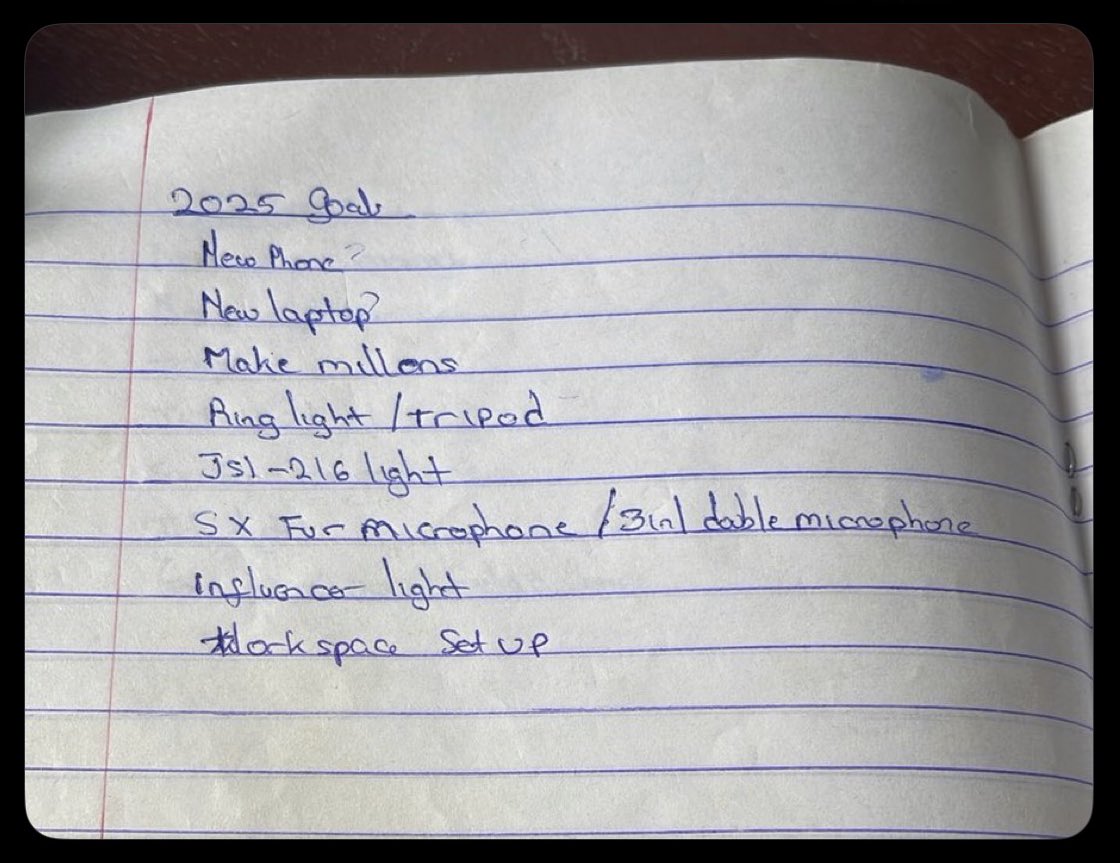 2025 Goals
New Phone?
New laptop?
Make millons
Ring light / Tripod
JSI-216 light
SX Fur microphone / 3in1 dable microphone
influencer light
Workspace Set up